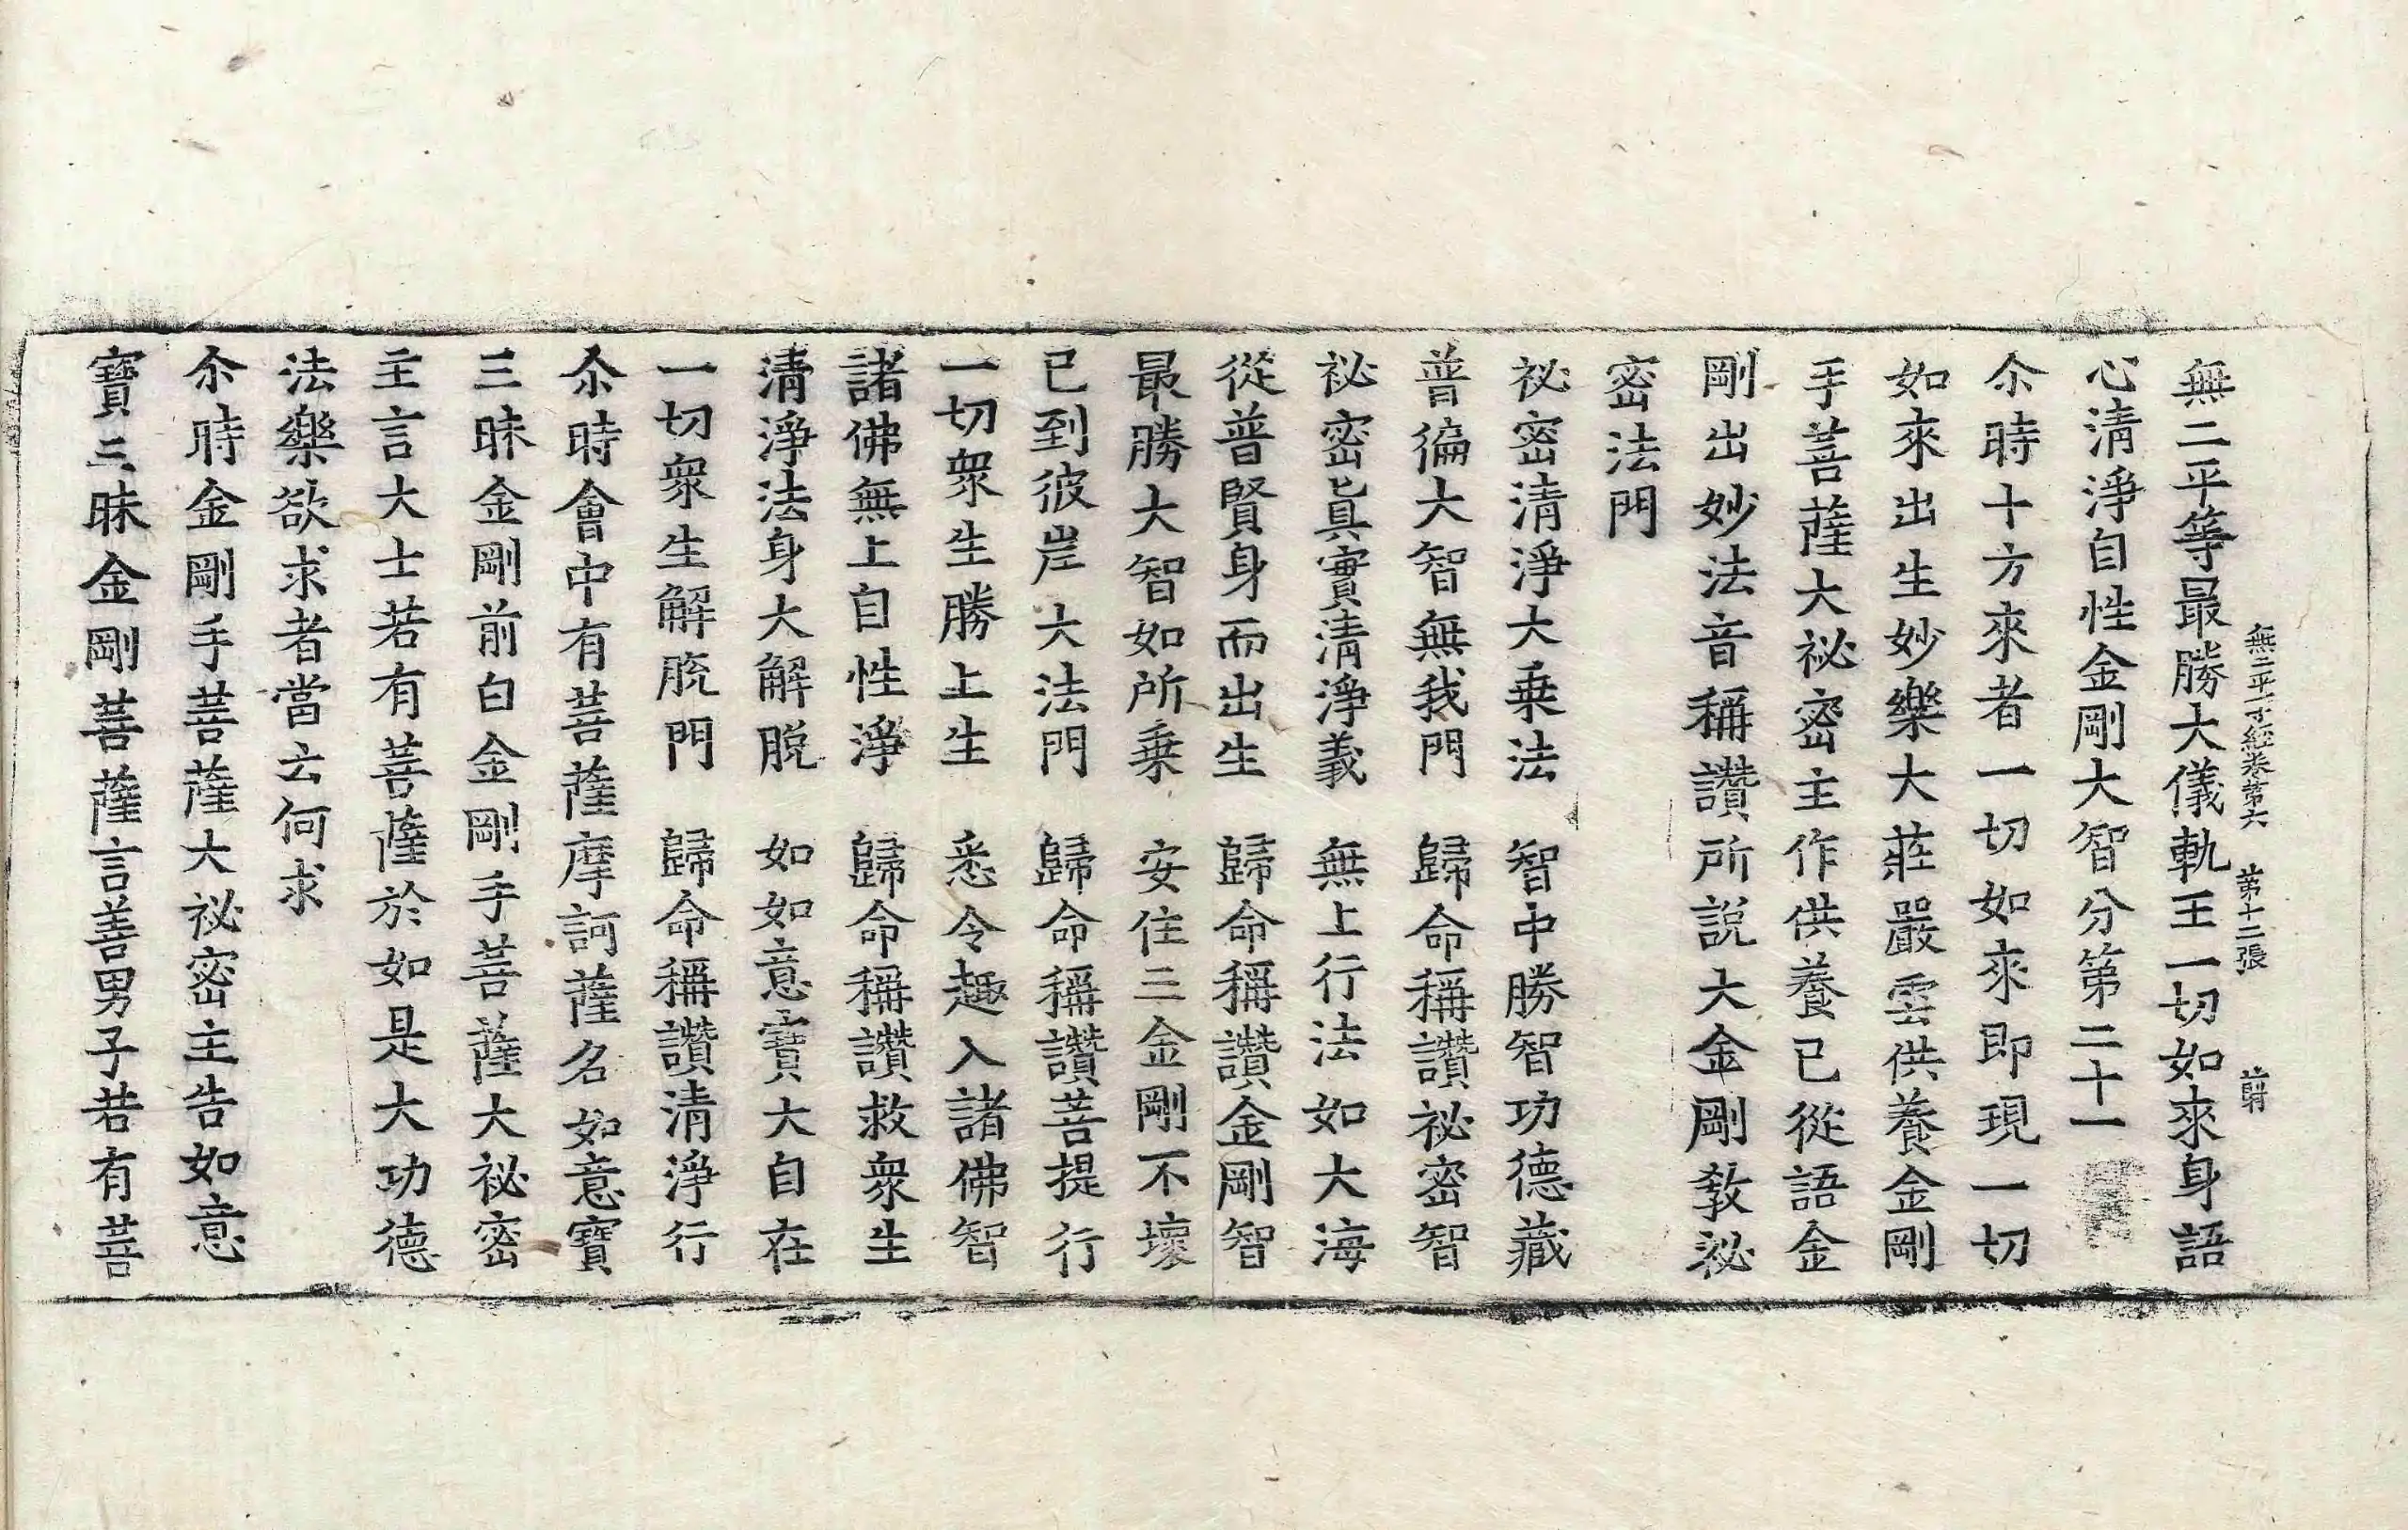 無二平等經卷第六 第十二張 前
無二平等最勝大儀軌王一切如來身語
心清淨自性金剛大智分第二十一
尒時十方來者一切如來即現一切
如來出生妙樂大莊嚴雲供養金剛
手菩薩大祕密主作供養已從語金
剛出妙法音稱讚所說大金剛教祕
密法門
祕密清淨大乗法 智中勝智功德藏
普徧大智無我門 歸命稱讚祕密智
祕密眞實清淨義 無上行法如大海
從普賢身而出生 歸命稱讚金剛智
最勝大智如所乗 安住三金剛不壞
已到彼岸大法門 歸命稱讚菩提行
一切衆生勝上生 悉令趣入諸佛智
諸佛無上自性淨 歸命稱讚救衆生
清淨法身大解脫 如如意寶大自在
一切衆生解脫門 歸命稱讚清淨行
尒時會中有菩薩摩訶薩名如意寶
三昧金剛前白金剛手菩薩大祕密
主言大士若有菩薩於如是大功德
法樂欲求者當云何求
尒時金剛手菩薩大祕密主告如意
寶三昧金剛菩薩言善男子若有菩